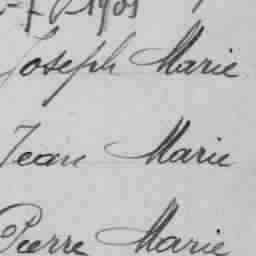 1901
Joseph Marie
Jean Marie
Pierre Marie